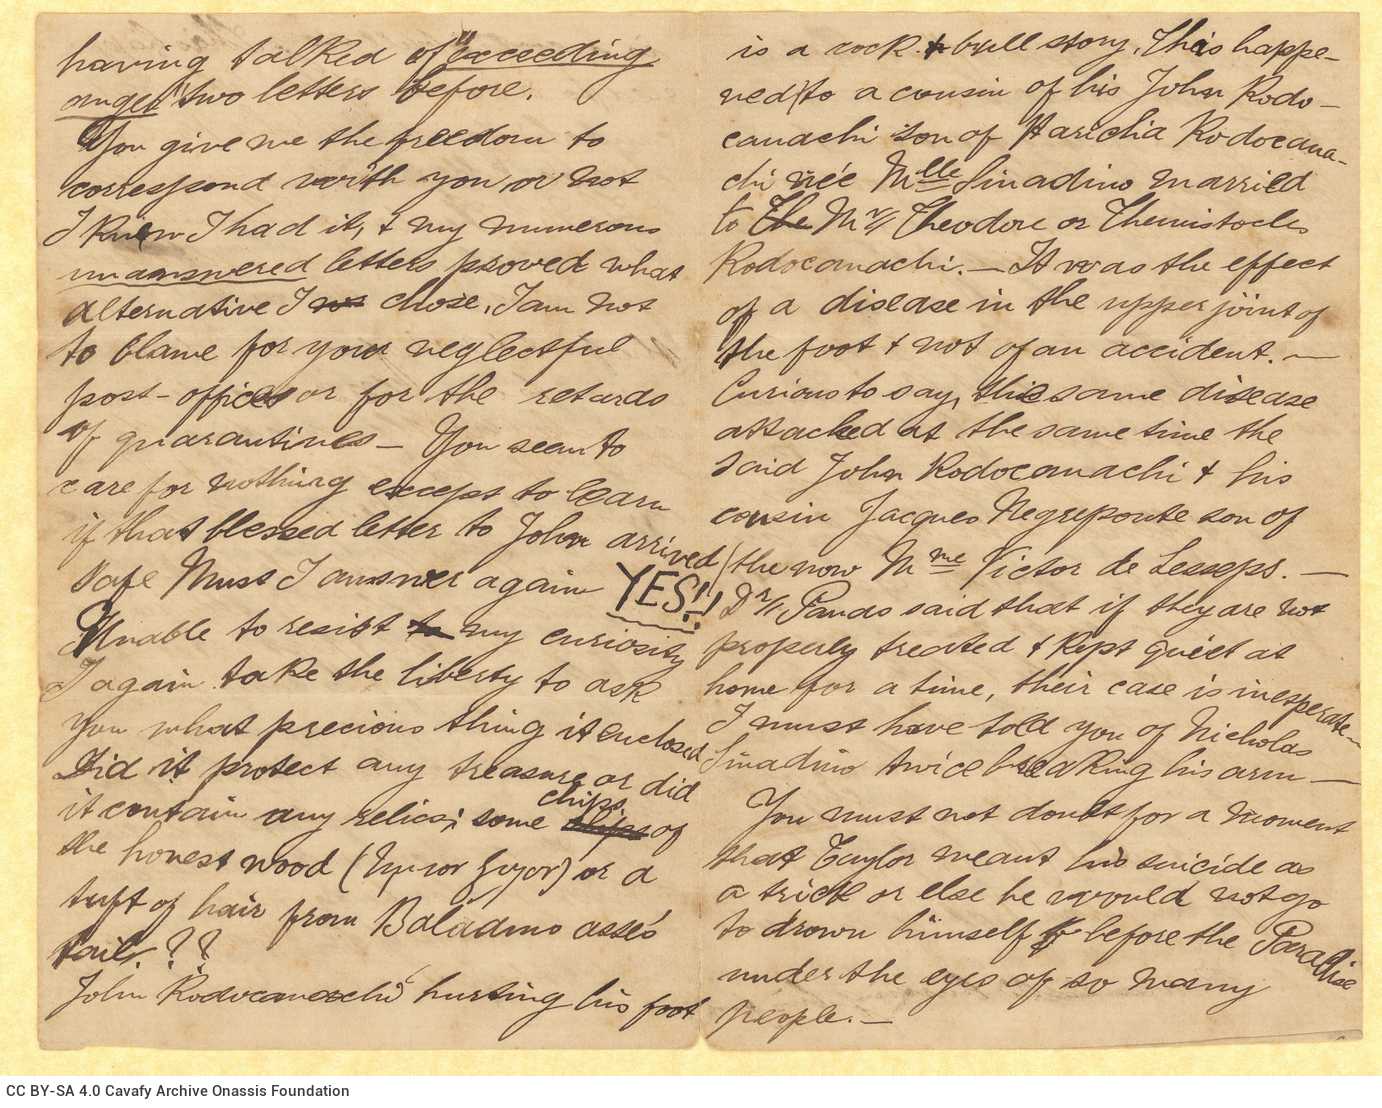 having talked of "exceeding
anger" two letters before.
You give me the freedom to
correspond with you or not
I knew I had it, & my numerous
unanswered letters proved what
alternative I chose, I am not
to blame for your neglectful
post-offices or for the retards
of quarantines — You seem to
care for nothing except to learn
if that blessed letter to John arrived
safe Must I answer again YES!!
Unable to resist to my curiosity
I again take the liberty to ask
you what precious thing it enclosed
Did it protect any treasure or did
it contain any relics; some chips of
the honest wood ( ) or a
tuft of hair from Baladino asses'
tail. ??
John Rodocanachi's hurting his foot
is a cock & bull story. This happe-
ned to a cousin of his John Rodo-
canachi son of Hariclia Rodocana-
chi née Mlle Sinadino married
to The Mr Theodore or Themistocles
Rodocanachi. — It was the effect
of a disease in the upper joint of
the foot & not of an accident. —
Curious to say, this same disease
attacked at the same time the
said John Rodocanachi & his
cousin Jacques Negreponte son of
(the now Mme Victor de Lesseps. —
Dr Pandos said that if they are not
properly treated & kept quiet at
home for a time, their case is inesperate.—
I must have told you of Nicholas
Sinadino twice breaking his arm —
You must not doubt for a moment
that Taylor meant his suicide as
a trick or else he would not go
to drown himself before the Paradise
under the eyes of so many
people. —
CC BY-SA 4.0 Cavafy Archive Onassis Foundation